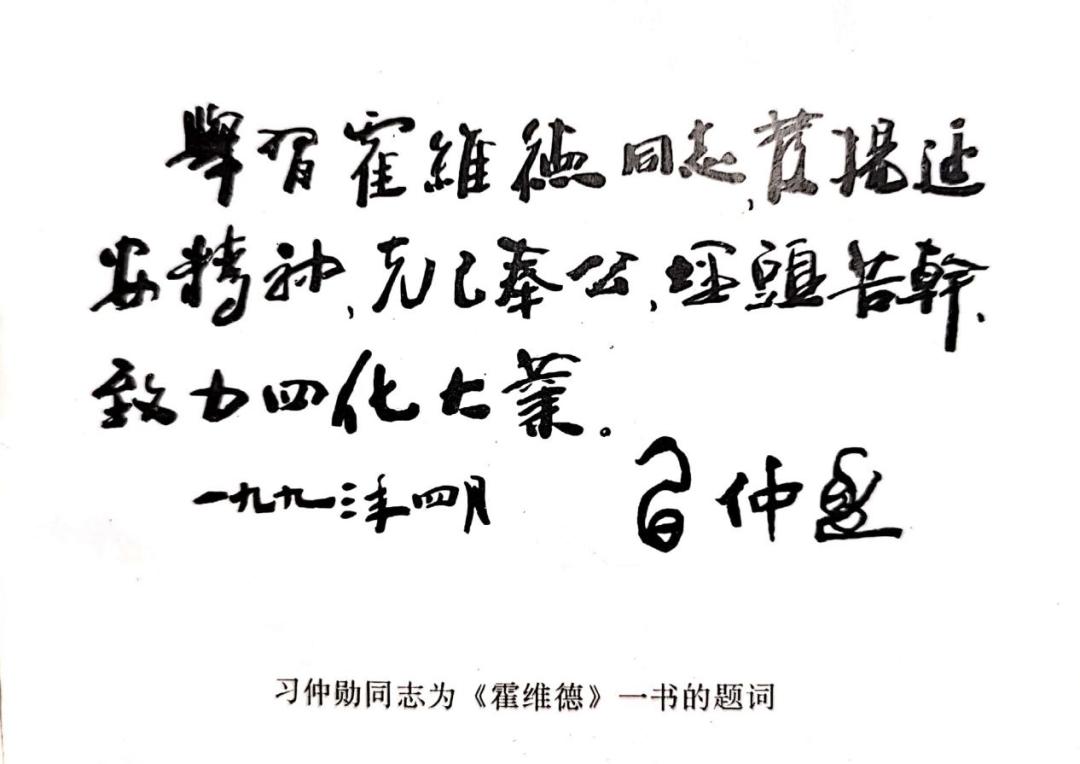 學習霍維德同志,發揚延
安精神,克己奉公,埋頭苦幹、
致力四化大業。
一九九三年四月 習仲勋
习仲勋同志为《霍维德》一书的题词